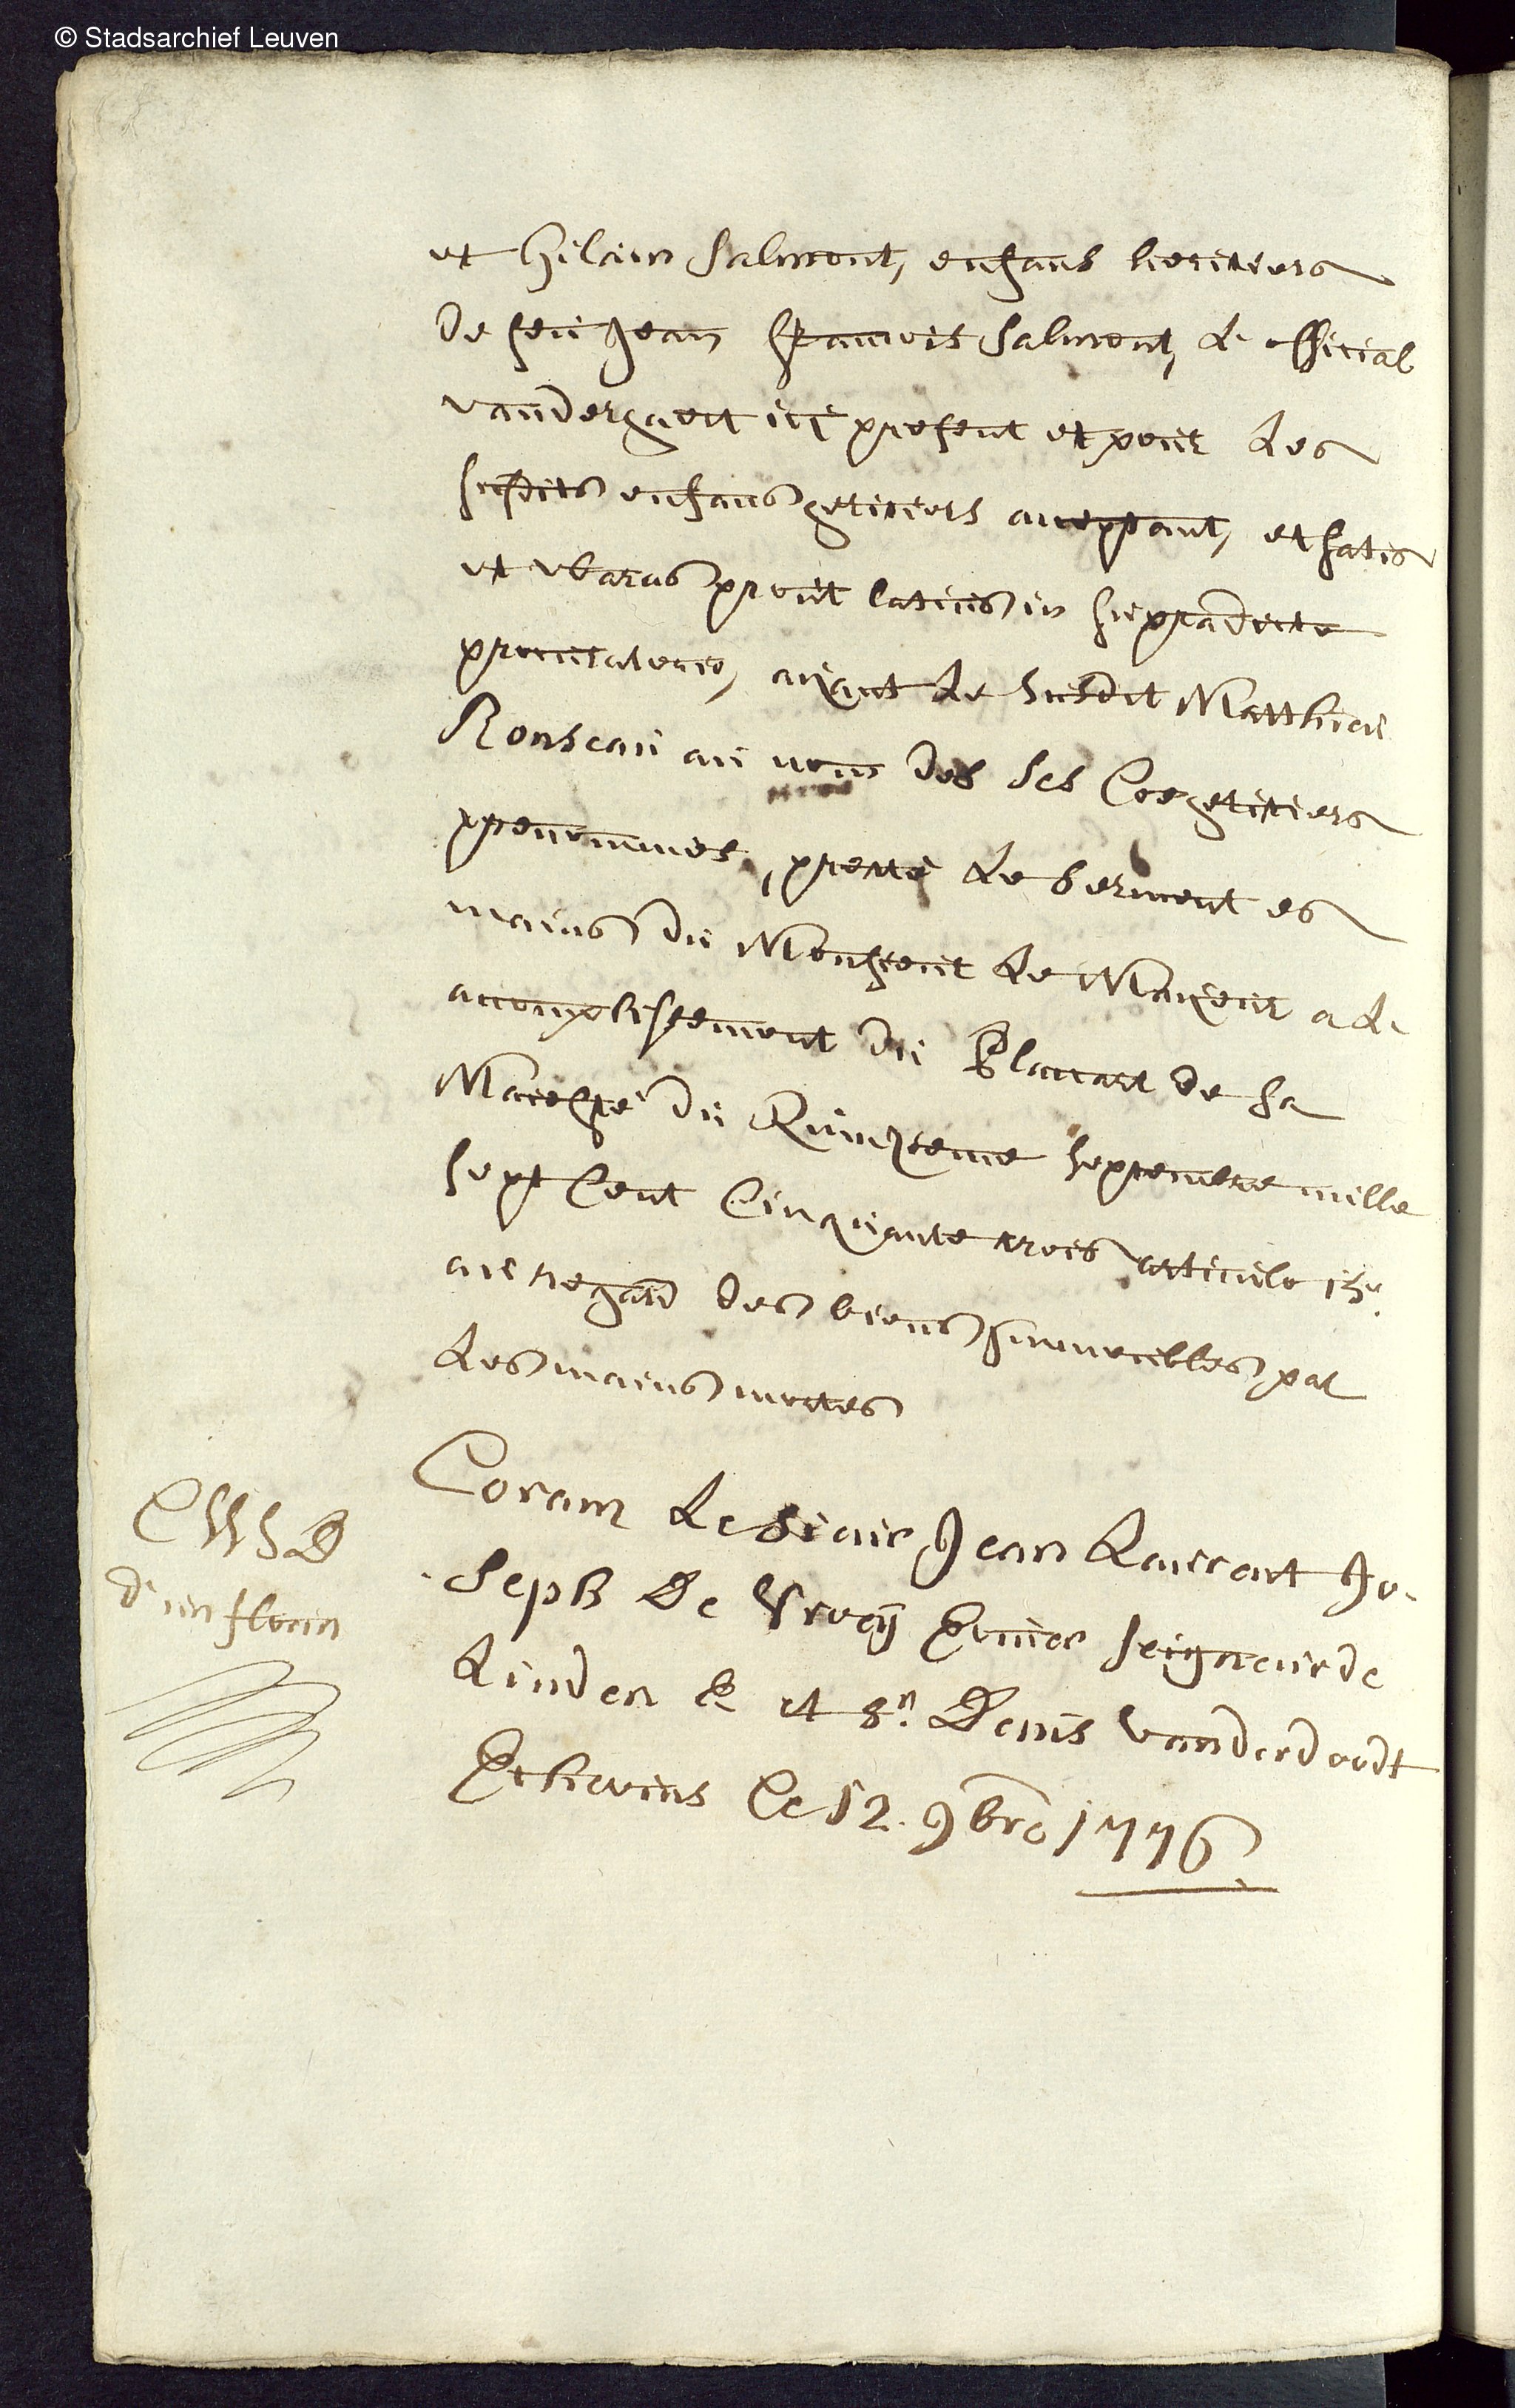 © Stadsarchief Leuven
et Gilain Salmont, enfans heritiers
de feu Jean Francois Salmont, L. official
vandergaert ici present et pour Les
susdits enfans getitiers acceptant, et satis
et waras prout latius in supradicte
procuratorio, aiant Le susdit Matthieu
Ronseau au nom des ses Coegetitiers
prenommes, preté Le serment es
mains du Monsieur Le Maieur a L.
accomplissement du Placcart de sa
Maiesté du Quinzieme Septembre mille
sept Cent Cinquante trois articulo 15.
au regard des biens immeubles par
Les mains mortes
Coram Le Sieur Jean Laurent Jo-
seph De Vroeÿ Ecuier seigneur de
Linden & et Sr. Denis vanderdoodt
Echevins Le 12. 9bre 1776.
d'un florin